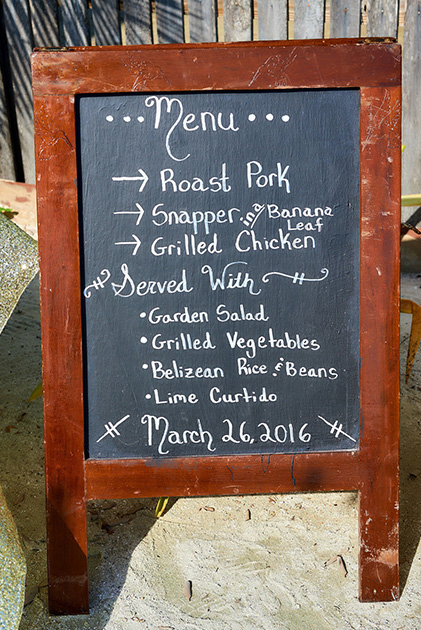 ...Menu...
→ Roast Pork
→ Snapper in a Banana Leaf
→ Grilled Chicken
Served With
• Garden Salad
• Grilled Vegetables
• Belizean Rice & Beans
• Lime Curtido
March 26, 2016